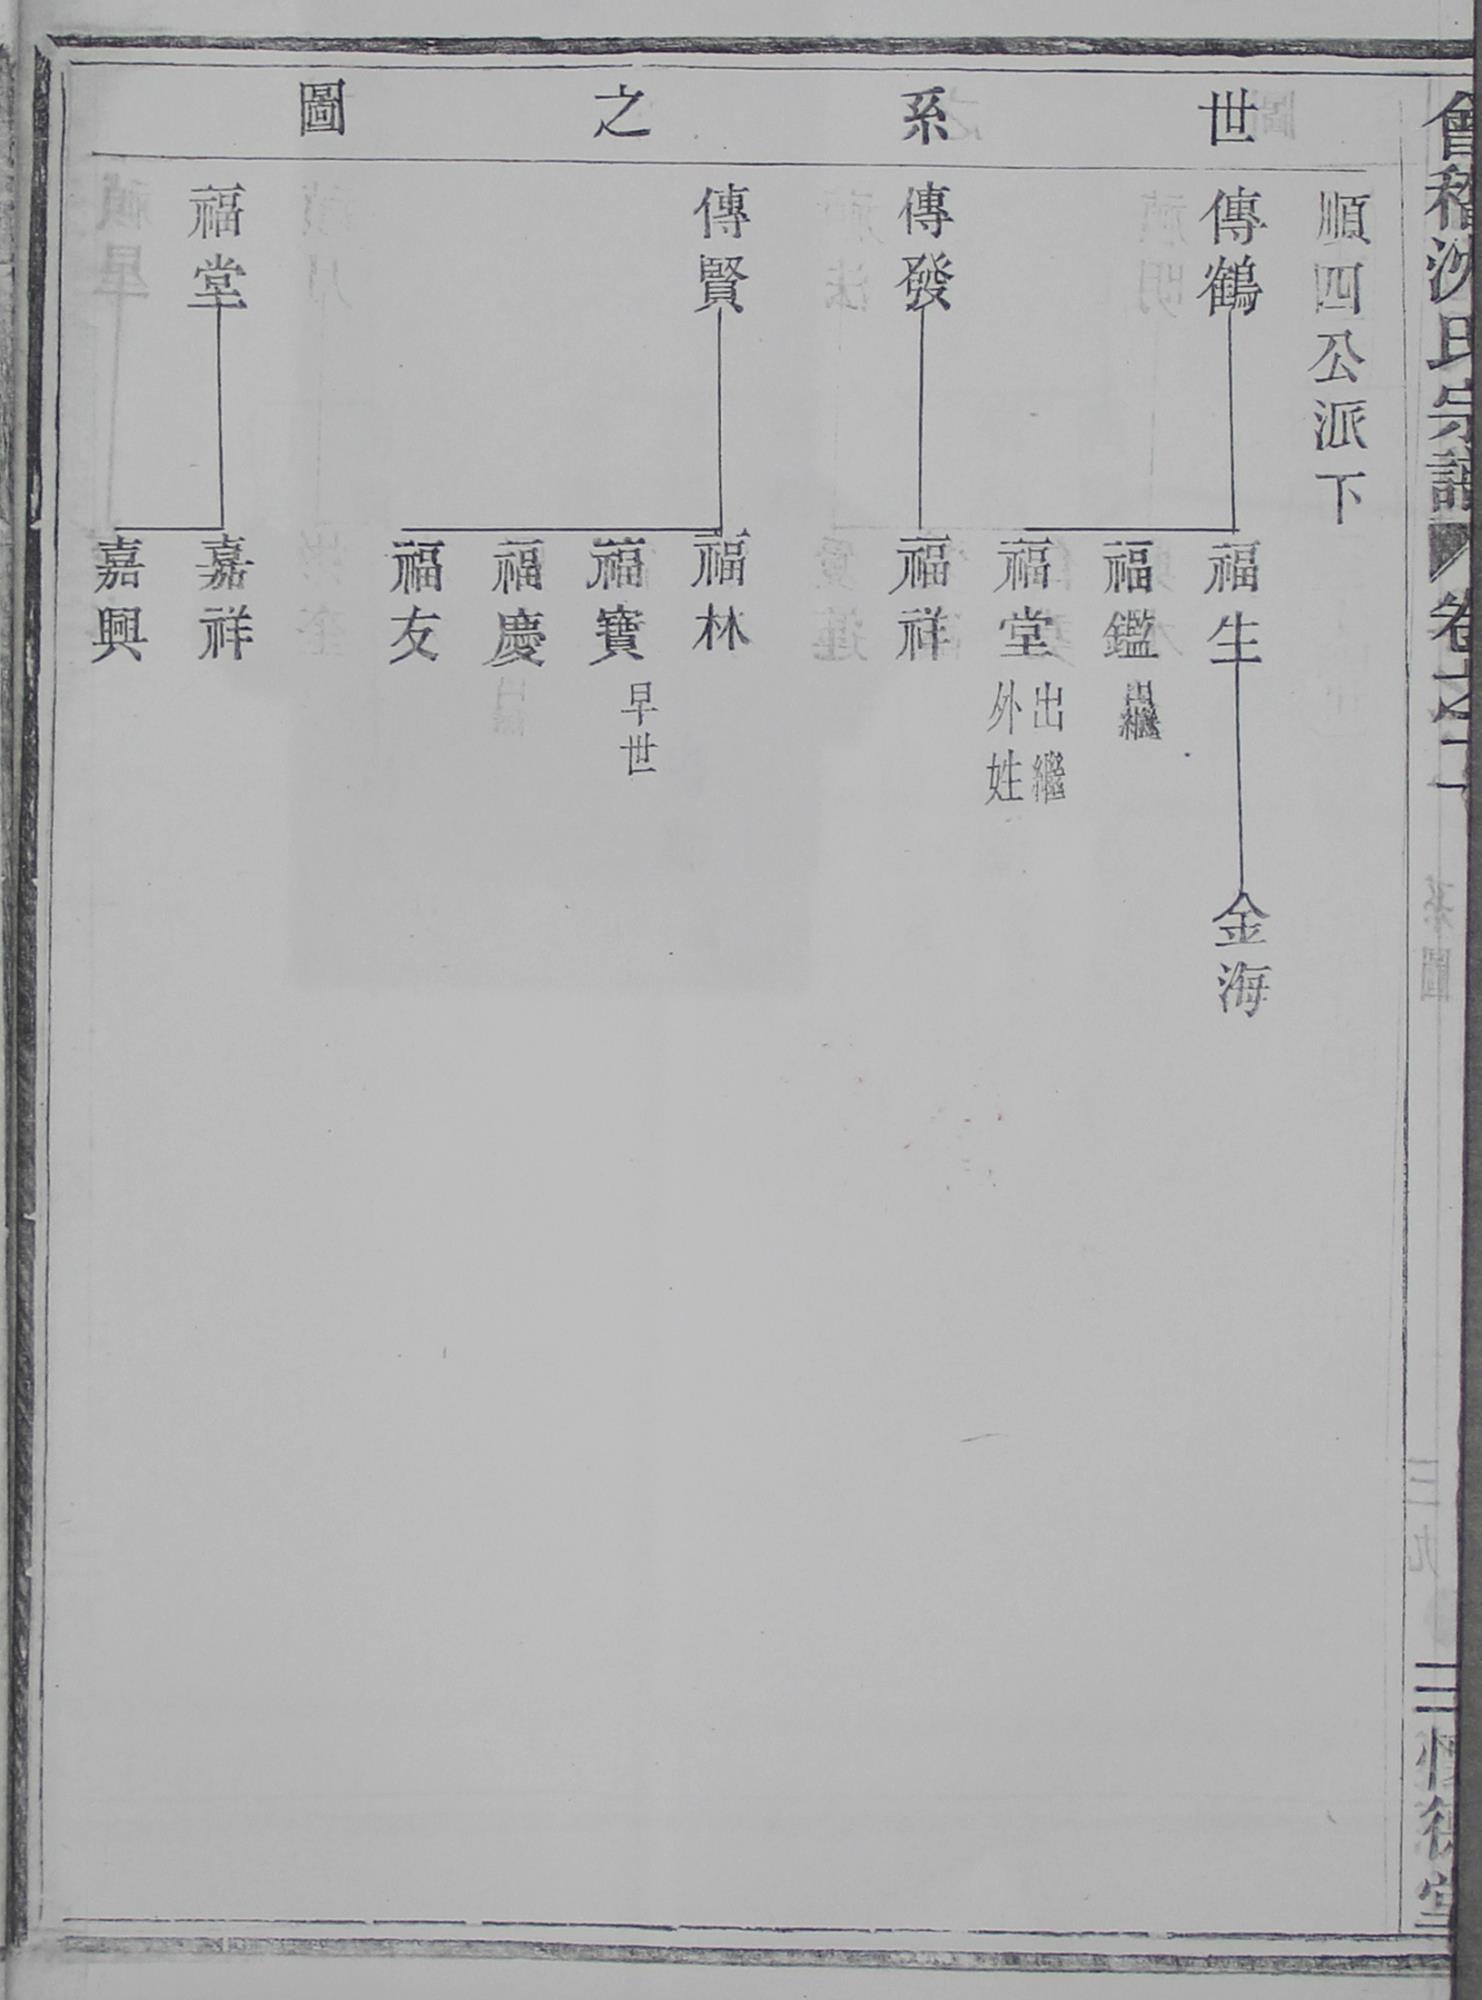 會稽沈氏宗譜
卷之
世系之圖
順四公派下
傳鶴
傳發
傳賢
福堂
福生
福鑑 出繼
福堂 出繼外姓
福祥
福林
福寶 早世
福慶
福友
嘉祥
嘉興
金海